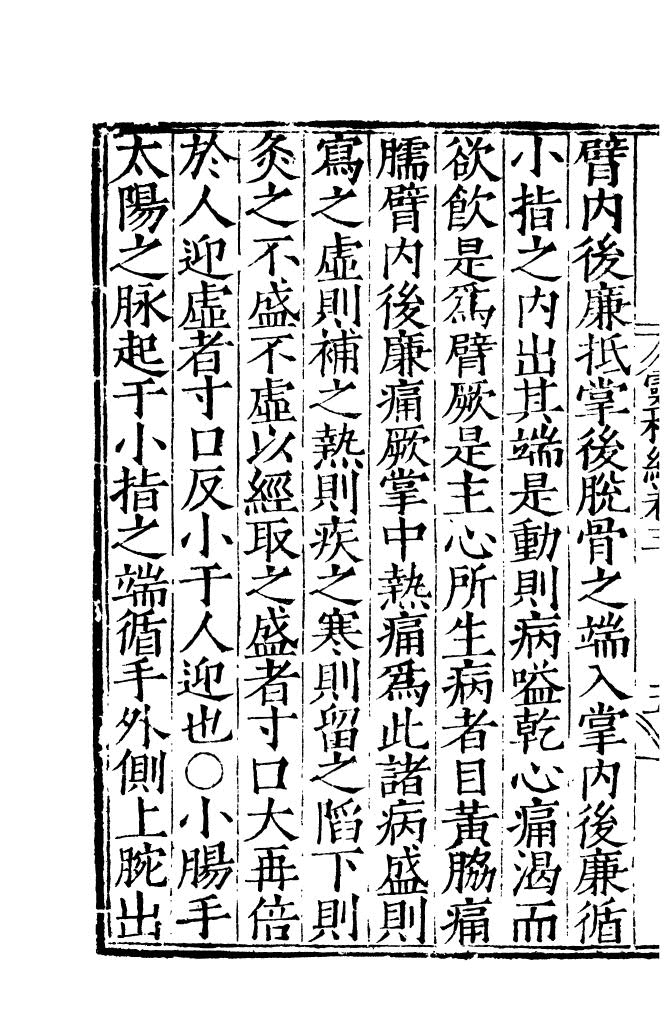 臂内後廉抵掌後脫骨之端入掌内後廉循
小指之内出其端是動則病嗌乾心痛渴而
欲飲是爲臂厥是主心所生病者目黃脇痛
臑臂内後廉痛厥掌中熱痛爲此諸病盛則
寫之虛則補之熱則疾之寒則留之陷下則
灸之不盛不虛以經取之盛者寸口大再倍
於人迎虛者寸口反小于人迎也○小腸手
太陽之脉起于小指之端循手外側上腕出